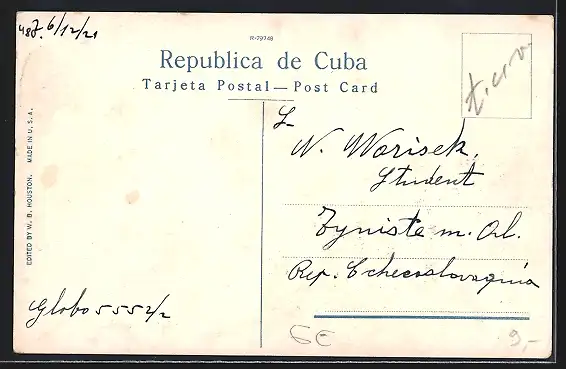 487. 6/12/21
R-79748
Republica de Cuba
Tarjeta Postal — Post Card
t.c.v.
EDITED BY W. B. HOUSTON. MADE IN U. S. A.
S
W. Morisek,
Student
Tyniste m. Orl.
Rep. Echecoslovaquia
Globo 555 2/2
6E
9,-